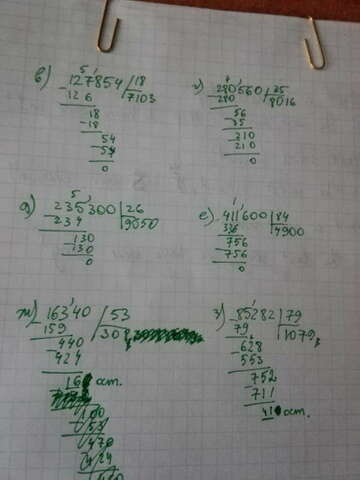 в) 127854 | 18
126 7103
18
18
54
54
0
г) 280560 | 35
280 8016
56
35
210
210
0
д) 235300 | 26
234 9050
130
130
0
е) 411600 | 84
336 4900
756
756
0
ж) 16340 | 53
159 308
440
424
16 ост.
з) 85282 | 79
79 1079
628
553
752
711
41 ост.